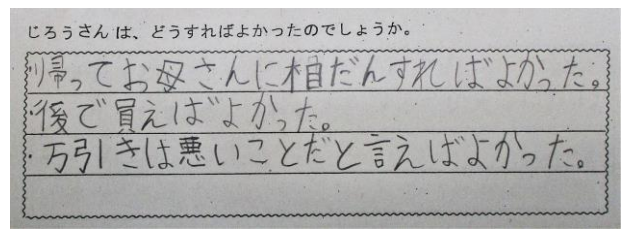 じろうさんは、どうすればよかったのでしょうか。
・帰ってお母さんに相だんすればよかった。
・後で買えばよかった。
・万引きは悪いことだと言えばよかった。